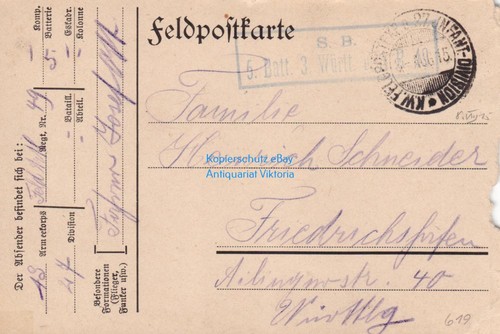 Feldpostkarte
S. B.
5. Batt. 3. Württ.
K.W. FELDPOST 27. INFANT.-DIVISION
Familie
Heinrich Schneider
Kopierschutz eBay
Antiquariat Viktoria
Friedrichshafen
Ailingerstr. 40
Württbg
619
Der Absender befindet sich bei:
13 Armeekorps
27 Division
Regt. Nr. 49
Batail.
Abteil.
Komp.
Batterie
5.
Eskadr.
Kolonne
Besondere
Formationen
(Flieger,
Funker usw.)